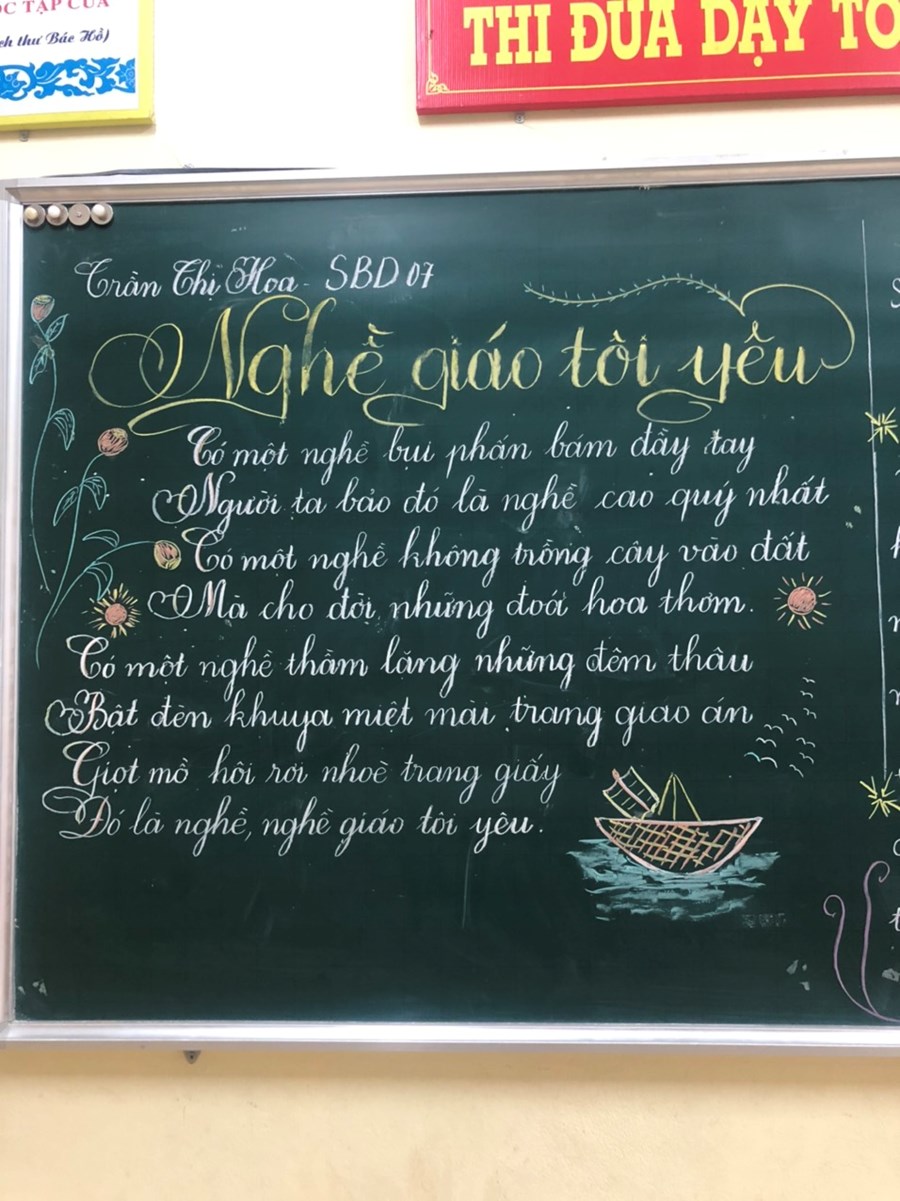 ỌC TẬP CỦA
ch thư Bác Hồ)
THI ĐUA DẠY TỐ
Trần Thị Hoa - SBD 07
Nghề giáo tôi yêu
Có một nghề bụi phấn bám đầy tay
Người ta bảo đó là nghề cao quý nhất
Có một nghề không trồng cây vào đất
Mà cho đời những đoá hoa thơm.
Có một nghề thầm lặng những đêm thâu
Bật đèn khuya miệt mài trang giáo án
Giọt mồ hôi rơi nhoè trang giấy
Đó là nghề, nghề giáo tôi yêu.